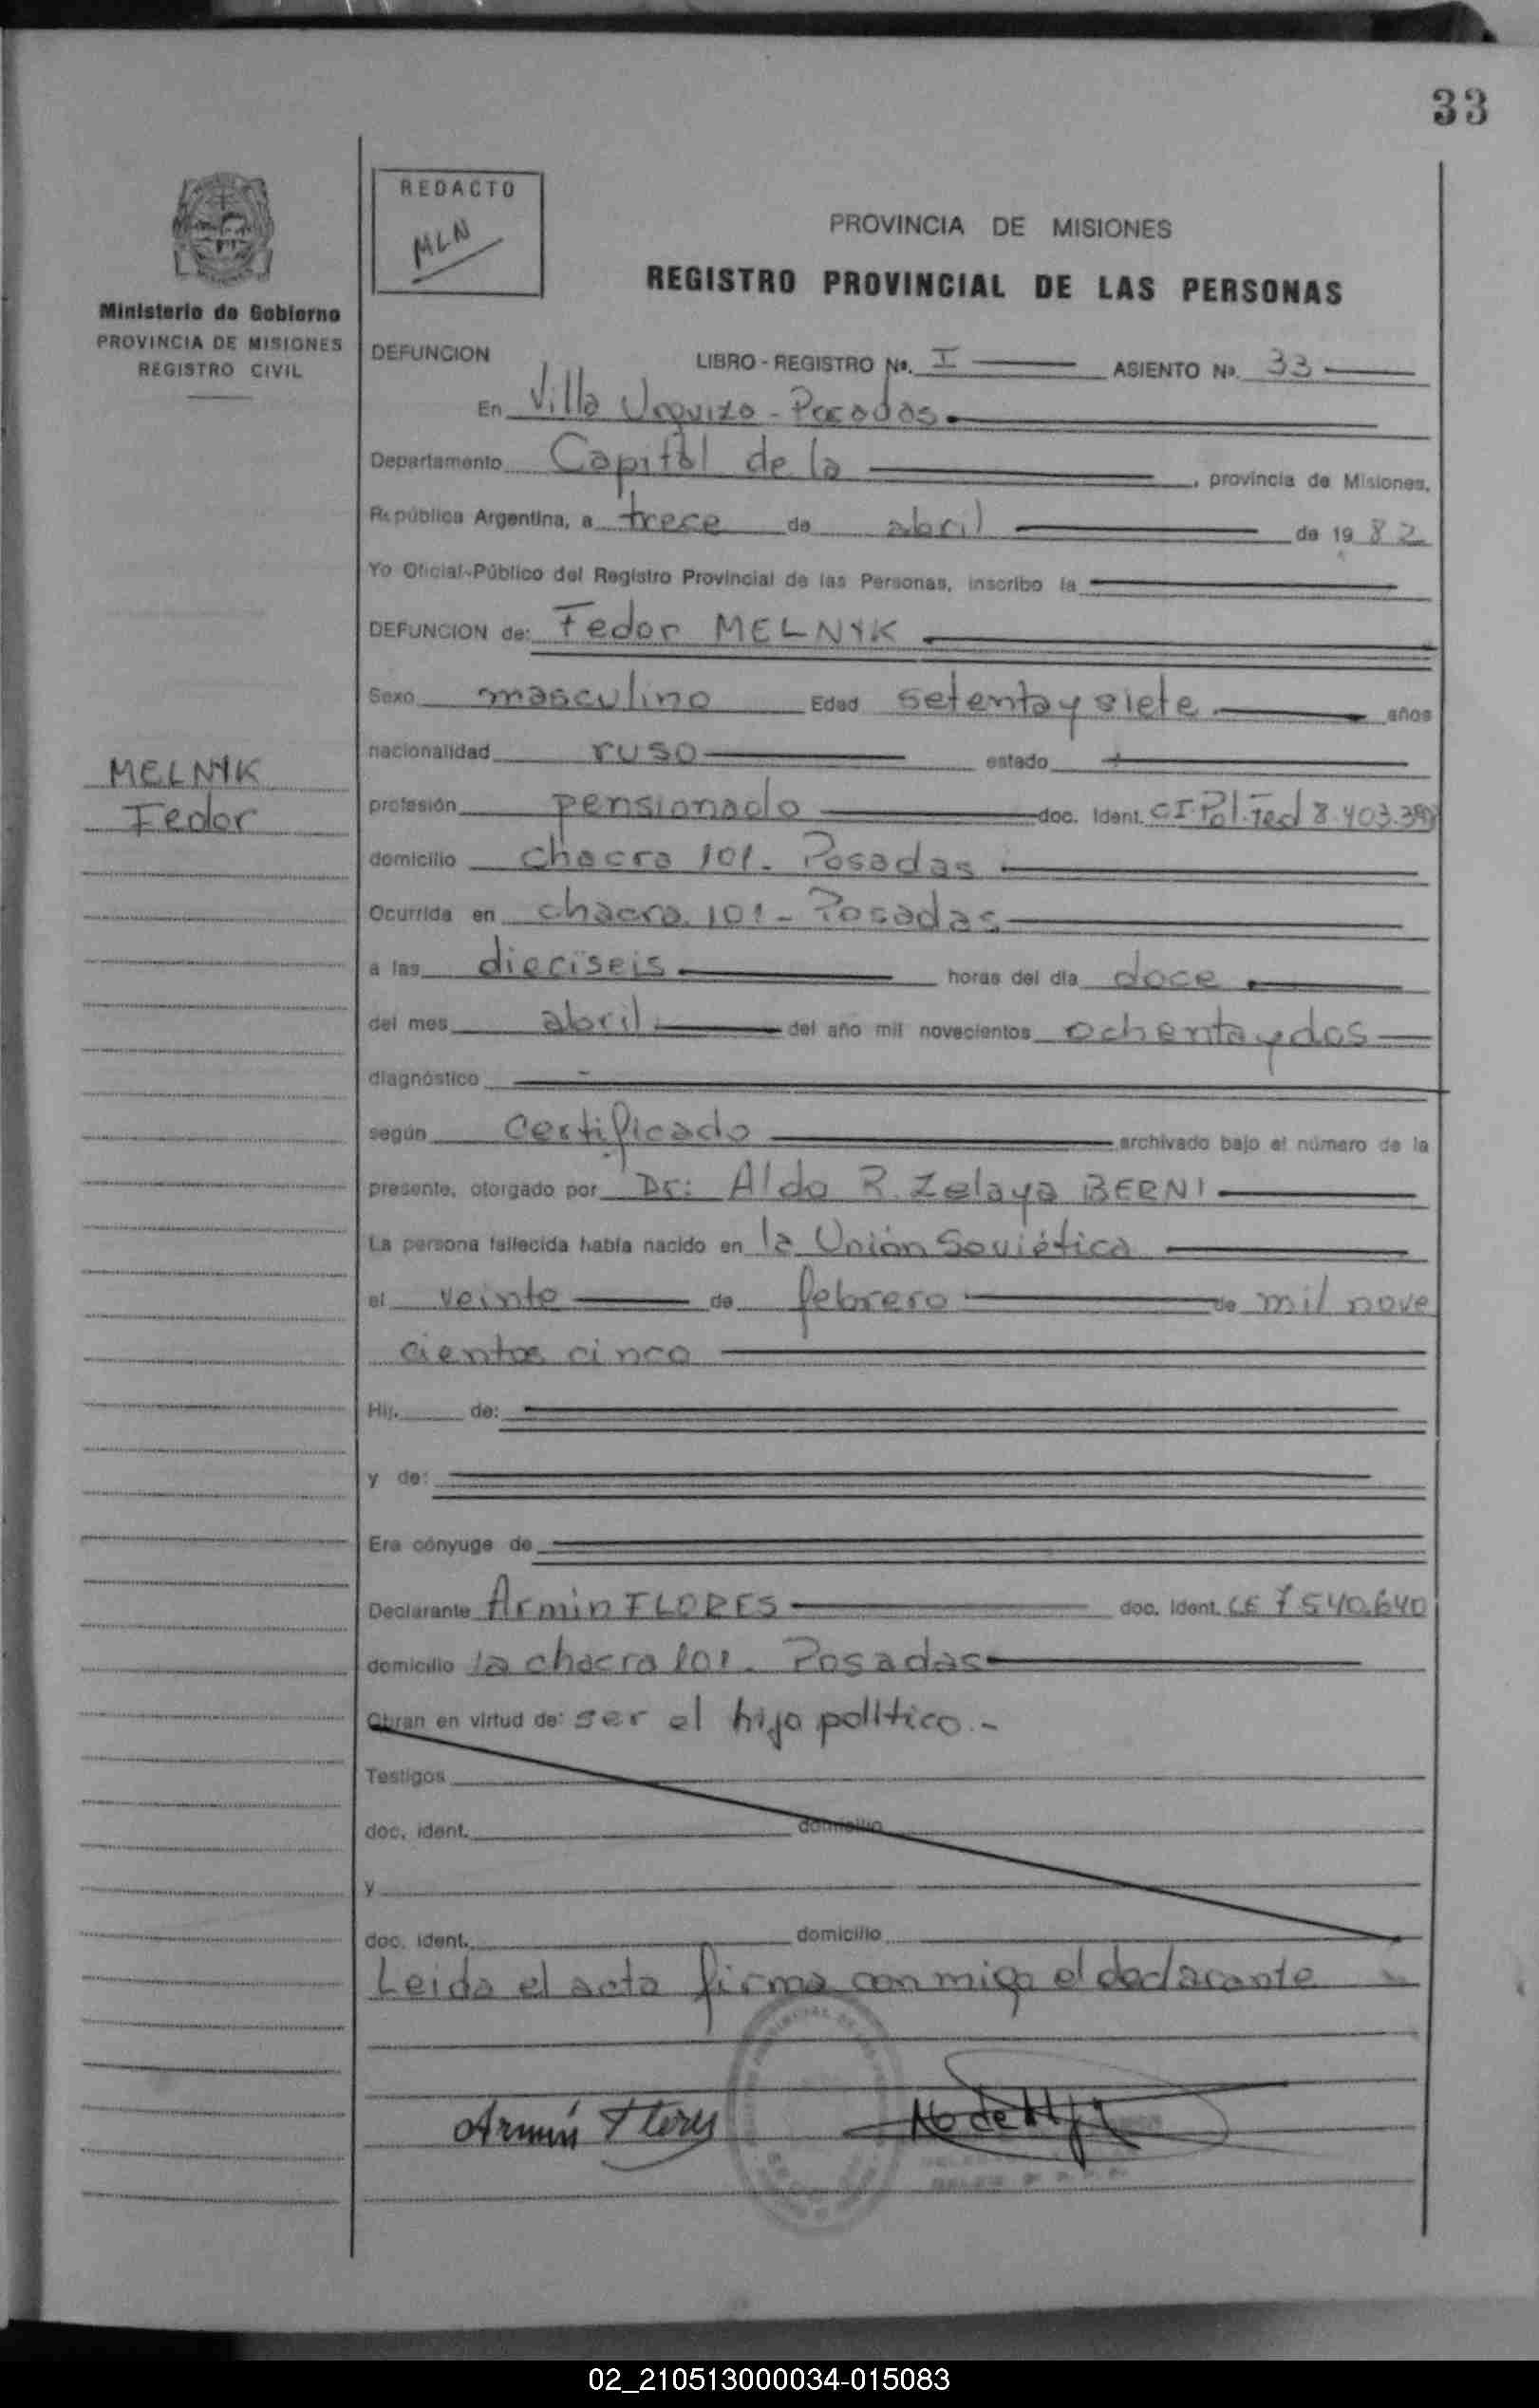 33
REDACTO
MLN
PROVINCIA DE MISIONES
REGISTRO PROVINCIAL DE LAS PERSONAS
Ministerio de Gobierno
PROVINCIA DE MISIONES
REGISTRO CIVIL
DEFUNCION LIBRO - REGISTRO Nº. I ASIENTO Nº. 33
En Villa Urquiza - Posadas
Departamento Capital de la , provincia de Misiones,
República Argentina, a trece de abril de 19 82
Yo Oficial-Público del Registro Provincial de las Personas, inscribo la
DEFUNCION de: Fedor MELNYK
Sexo masculino Edad setenta y siete años
nacionalidad ruso estado
MELNYK
Fedor
profesión pensionado doc. Ident. CI. Pol. Fed 8.403.
domicilio chacra 101 - Posadas
Ocurrida en chacra 101 - Posadas
a las dieciseis horas del día doce
del mes abril del año mil novecientos ochenta y dos
diagnóstico
según certificado archivado bajo el número de la
presente, otorgado por Dr: Aldo R. Zelaya BERNI
La persona fallecida había nacido en la Unión Soviética
el veinte de febrero de mil nove
cientos cinco
Hij. de:
y de:
Era cónyuge de
Declarante Armin FLORES doc. Ident. CE 7 540.640
domicilio la chacra 101 - Posadas
Obran en virtud de: ser el hijo político.-
Testigos
doc. ident. domicilio
y
doc. ident. domicilio
Leida el acta firma conmigo el declarante
Armin Flores
02_210513000034-015083